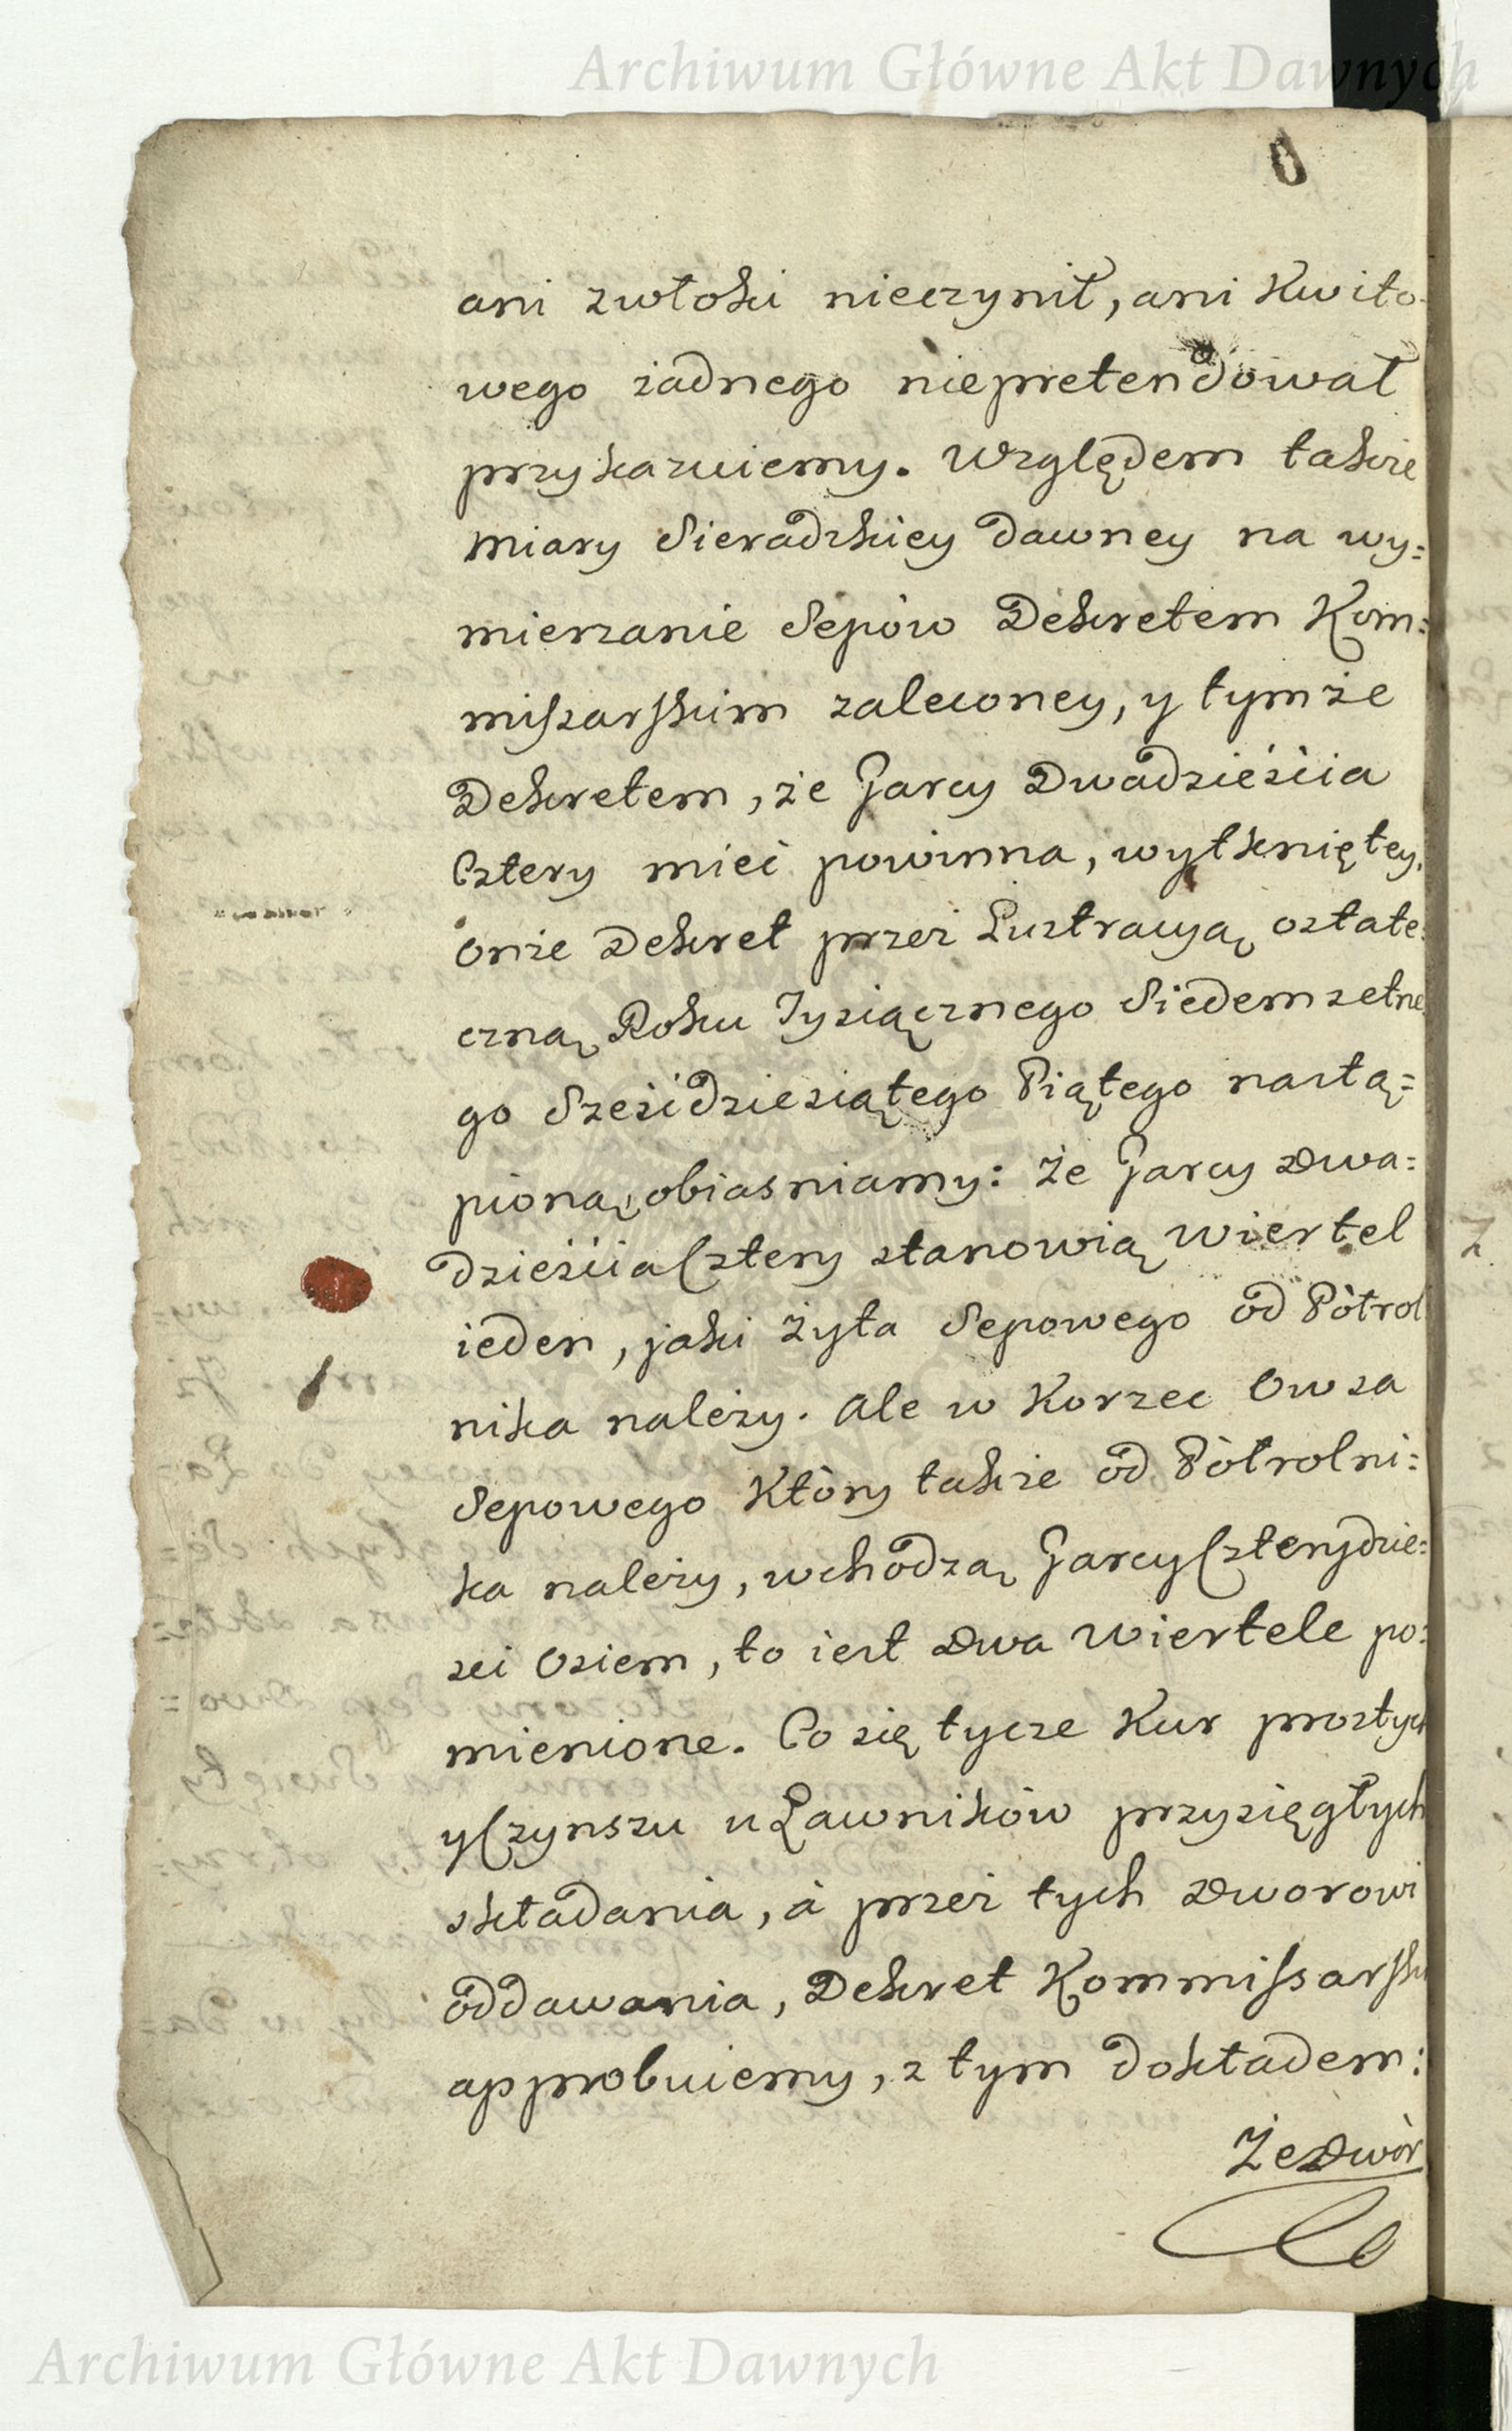 Archiwum Główne Akt Dawnych
ani zwłoki nieczynił, ani Kwito-
wego żadnego niepretendował
przykazuiemy. Względem także
miary Sieradzkiey dawney na wy=
mierzanie Sepów Dekretem Kom=
missarskim zaleconey, y tymże
Dekretem, że Garcy Dwadzieścia
Cztery mieć powinna, wytkniętey,
onże Dekret przez Lustracyą ostate=
czną Roku Tysiącznego Siedemsetne
go Sześćdziesiątego Piątego nastą=
pioną, obiasniamy: że Garcy Dwa=
dzieścia Cztery stanowią Wiertel
ieden, jaki Żyta Sepowego od Półrol
nika należy. Ale w Korzec Owsa
Sepowego który także od Półrolni=
ka należy, wchodzą Garcy Czterydzie=
sci Osiem, to iest Dwa Wiertele po=
mienione. Co się tycze Kur prostych
y Czynszu u Ławników przysięgłych
składania, á przez tych Dworowi
oddawania, Dekret Kommissarski
approbuiemy, z tym dokładem:
Że Dwór
Archiwum Główne Akt Dawnych